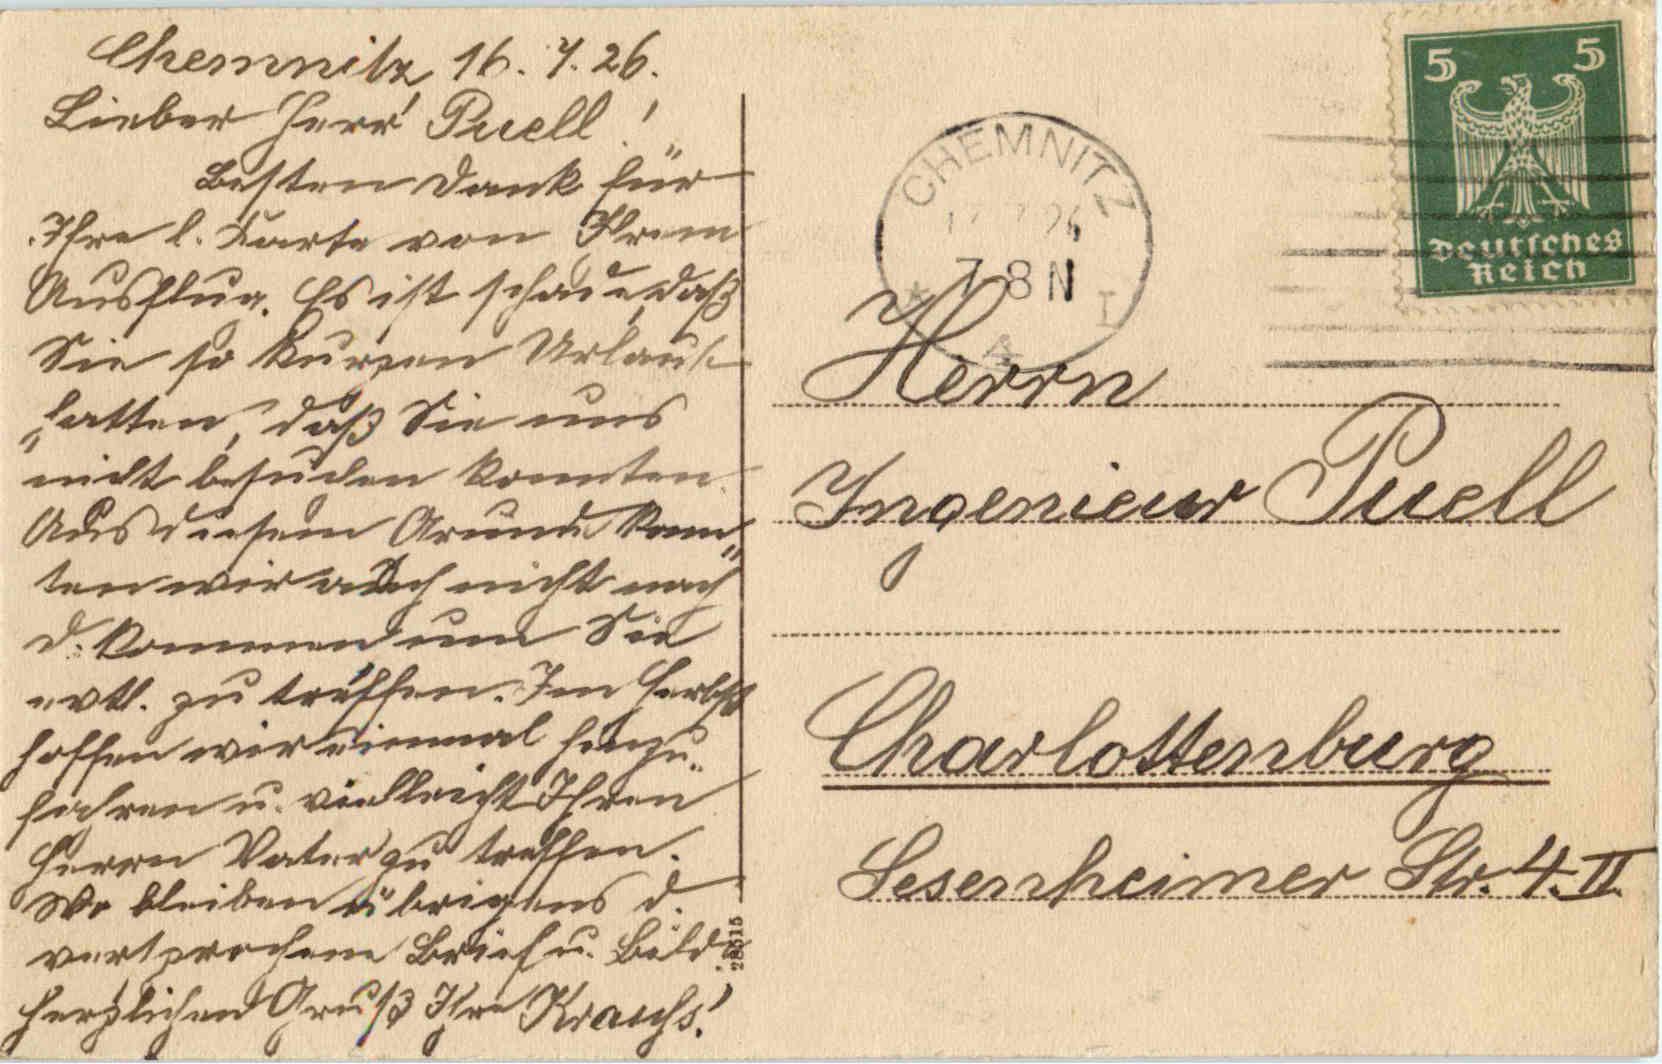 Chemnitz, 16. 7. 26.
Lieber Herr Puell!
Besten Dank für
Ihre l. Karte von Ihrem
Ausflug. Es ist schade, daß
Sie so kurzen Urlaub
hatten, daß Sie uns
nicht besuchen konnten.
Aus diesem Grunde konn„
ten wir auch nicht nach
D. kommen um Sie
evtl. zu treffen. Im Herbst
hoffen wir einmal hinzu„
fahren u. vielleicht Ihren
Herrn Vater zu treffen.
Wo bleiben übrigens d.
versprochene Brief u. Bilder.
Herzlichen Gruß Ihre
28515
CHEMNITZ
17.7.26
7-8 N
* I
4
5 5
Deutsches
Reich
Herrn
Ingenieur Puell
Charlottenburg
Sesenheimer Str. 4. II.